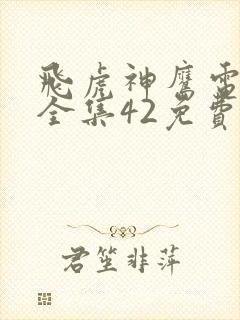 飛虎神鷹電
全集42免費
君笙非萍